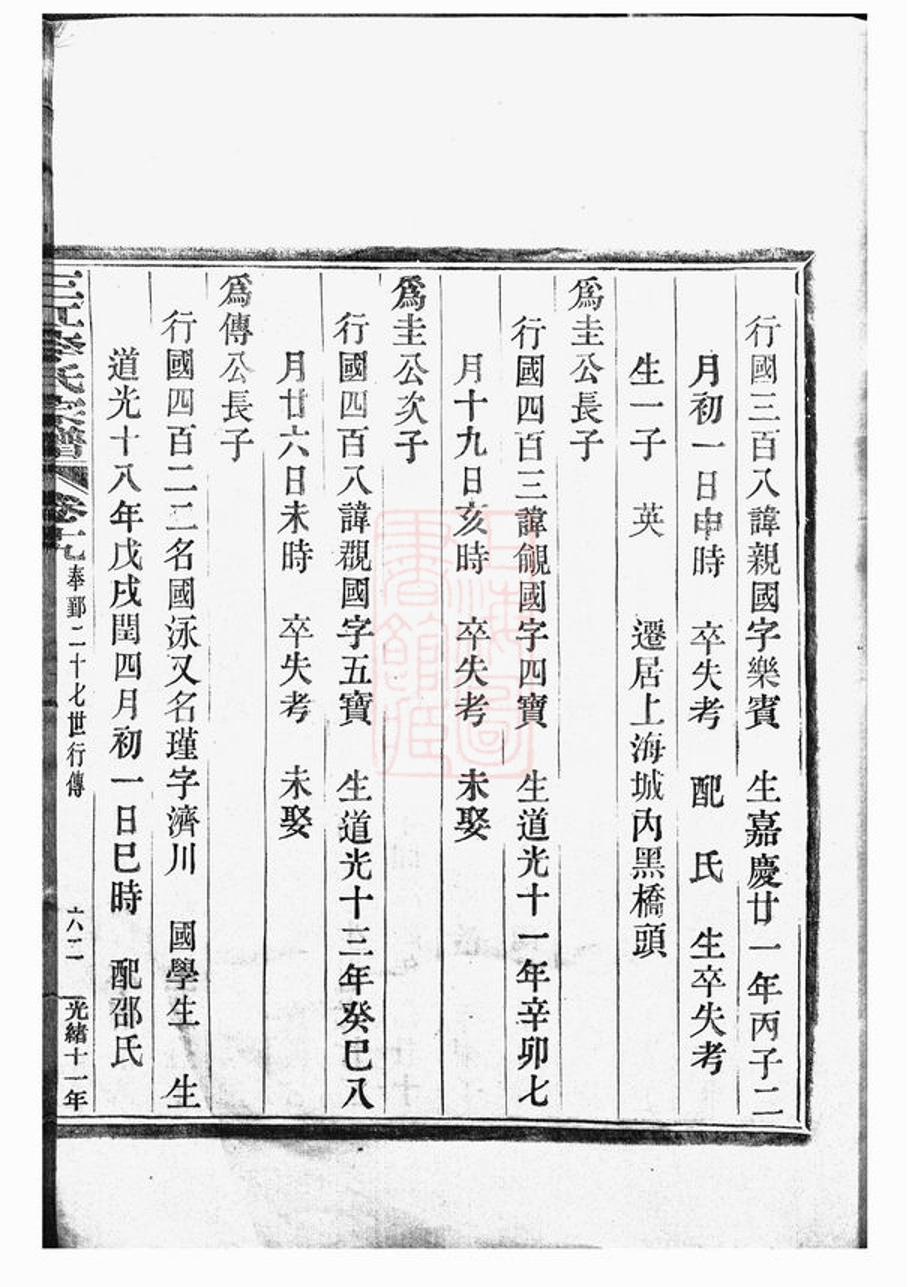 行國三百八諱親國字樂賓　生嘉慶廿一年丙子二
月初一日申時　卒失考　配　氏　生卒失考
生一子　英　　遷居上海城內黑橋頭
為圭公長子
行國四百三諱觎國字四寶　生道光十一年辛卯七
月十九日亥時　卒失考　未娶
為圭公次子
行國四百八諱覩國字五寶　生道光十三年癸巳八
月廿六日未時　卒失考　未娶
為傳公長子
行國四百二二名國泳又名瑾字濟川　國學生　生
道光十八年戊戌閏四月初一日巳時　配邵氏
三江李氏家譜　卷十九　奉鄞二十七世行傳　六二　光緒十一年
上海圖書館藏